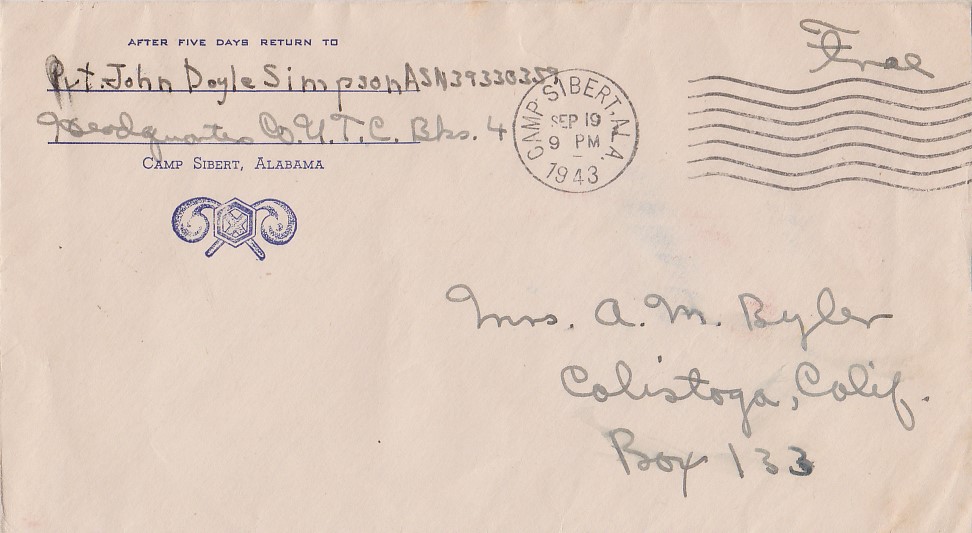 AFTER FIVE DAYS RETURN TO
Pvt. John Doyle Simpson ASN39330359
Headquarters Co. U.T.C. Bks. 4
CAMP SIBERT, ALABAMA
CAMP SIBERT, ALA.
SEP 19
9 PM
1943
Free
Mrs. A. M. Byler
Calistoga, Calif.
Box 133